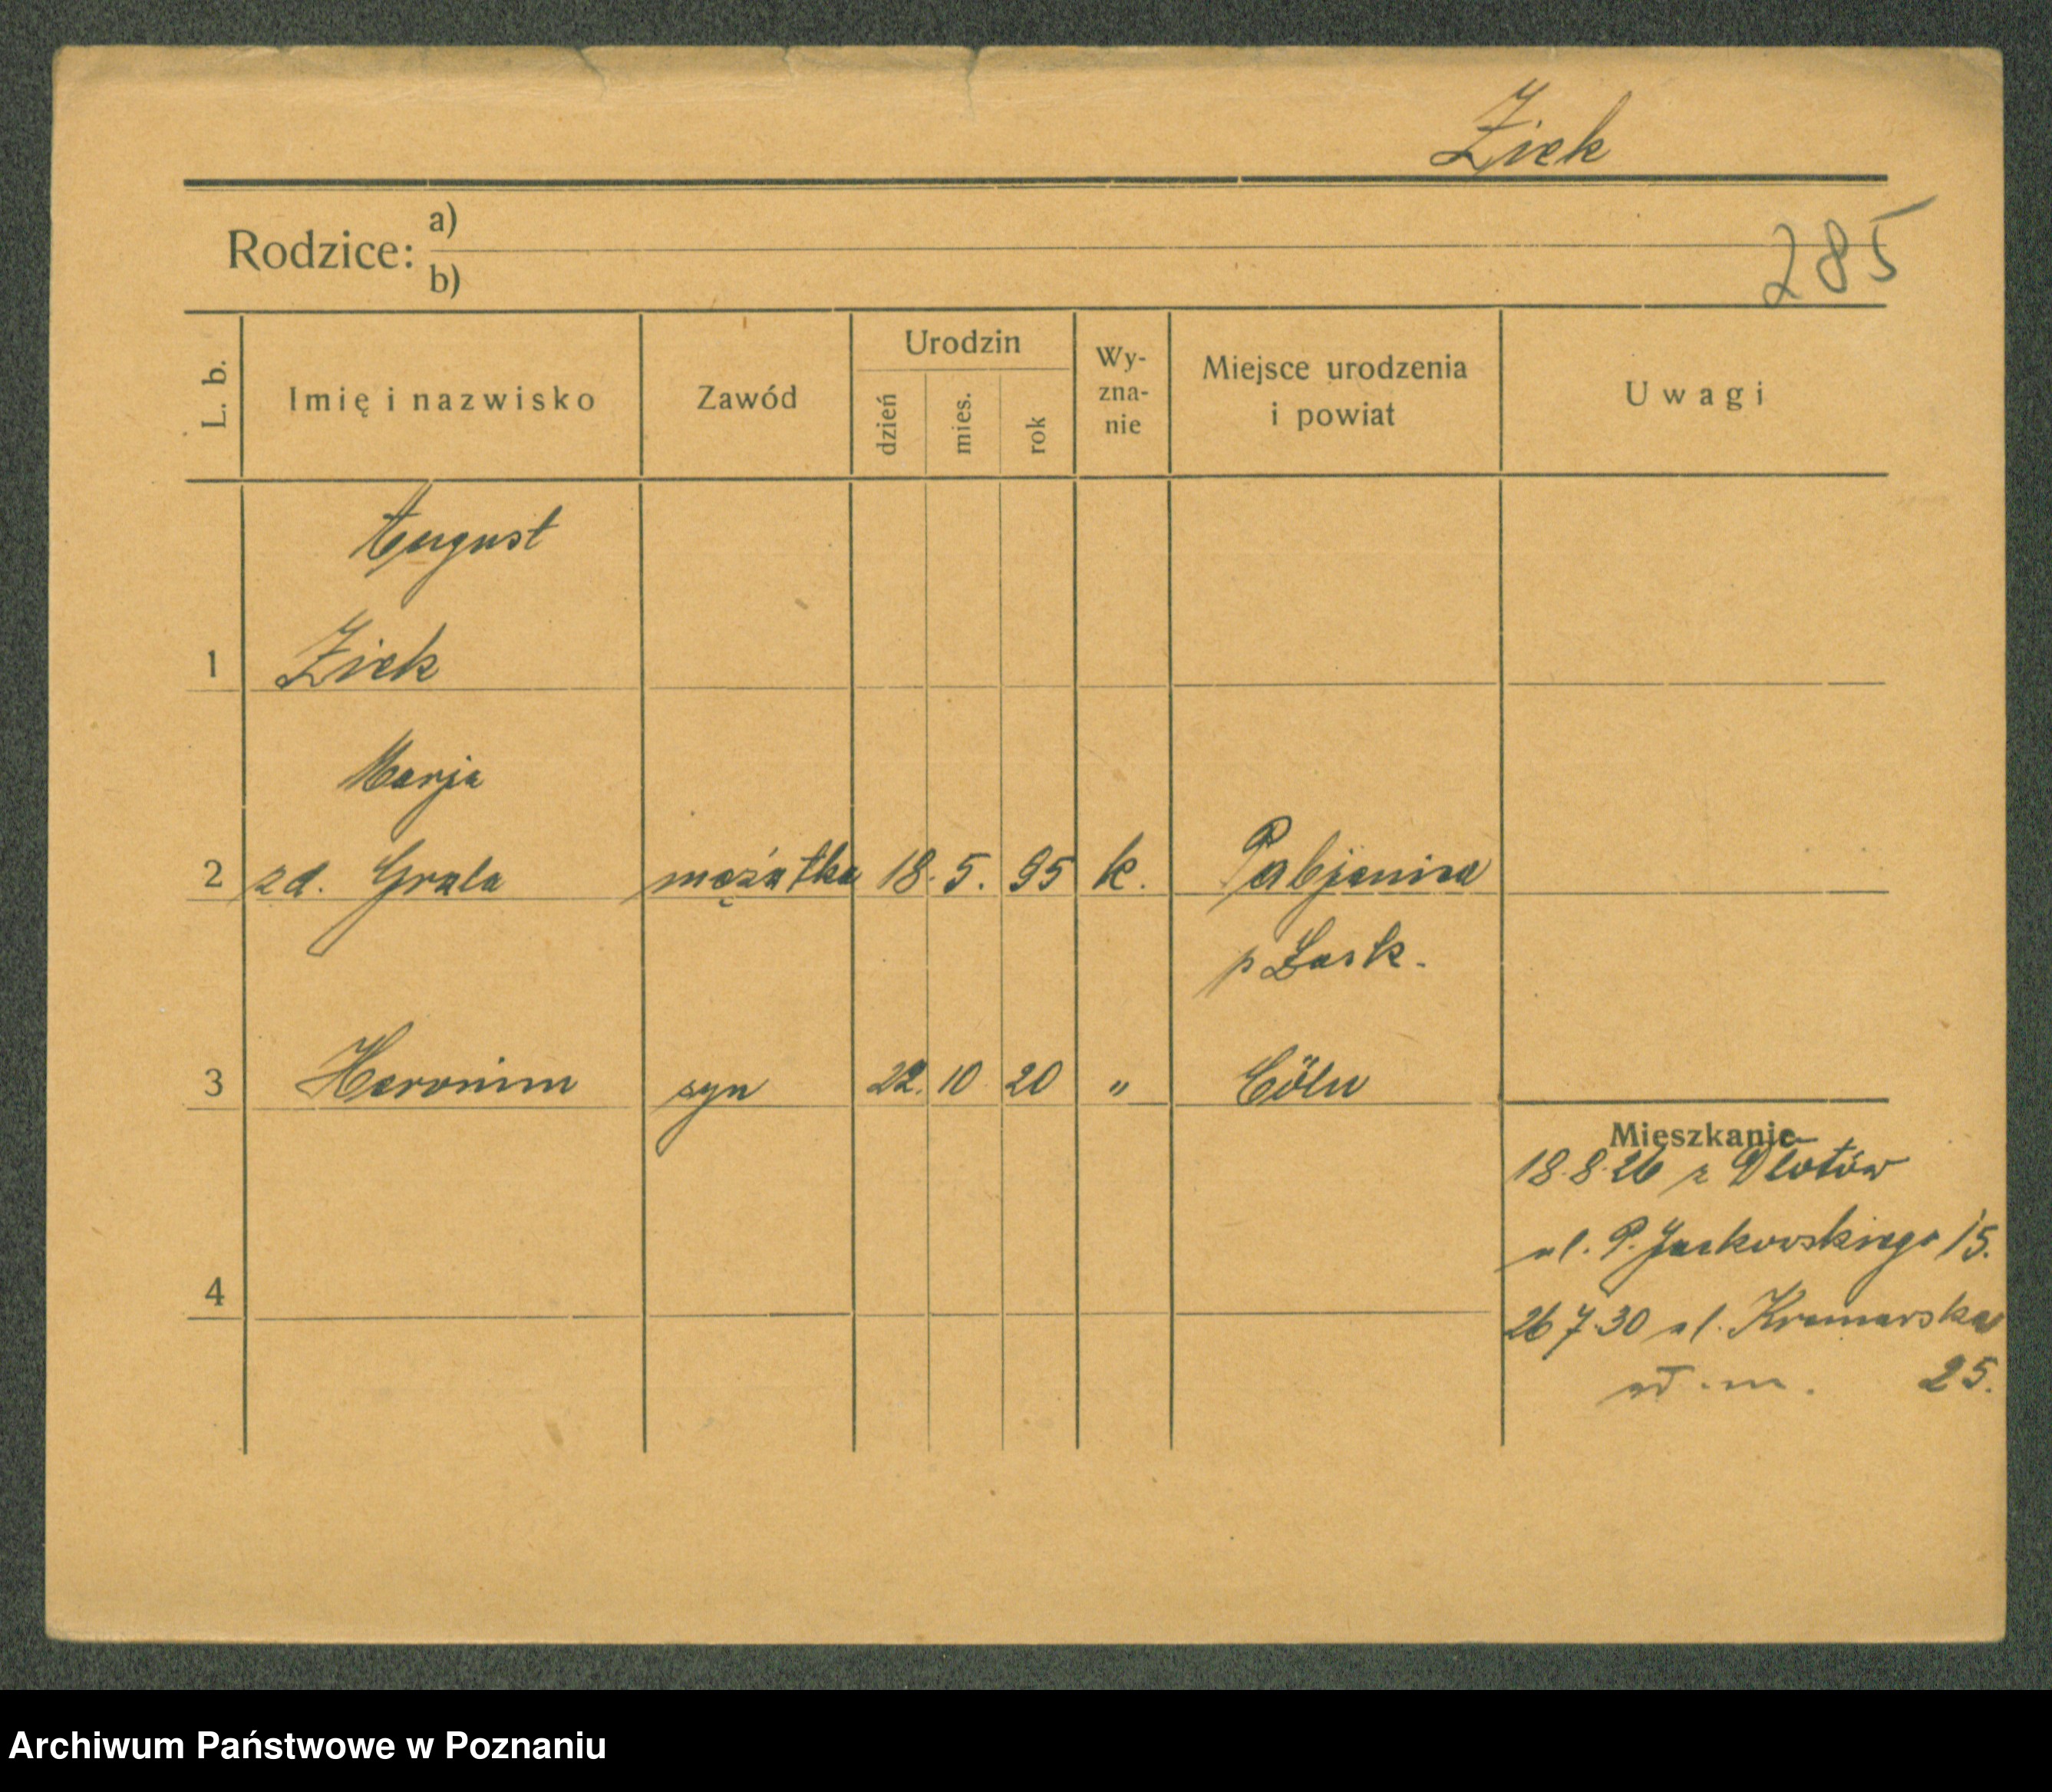 Ziek
Rodzice:
a)
b)
285
L. b.
Imię i nazwisko
Zawód
Urodzin
dzień
mies.
rok
Wy-
zna-
nie
Miejsce urodzenia
i powiat
Uwagi
August
1 Ziek
Marja
2 zd. Grala mężatka 18. 5. 95 k. Pabjanica
p Łask.
3 Heronim syn 22. 10 20 " Cöln
Mieszkanie
18.8.26 z
ul. P. Jackowskiego 15.
4
26 7.30 ul. Kramarska
25.
Archiwum Państwowe w Poznaniu